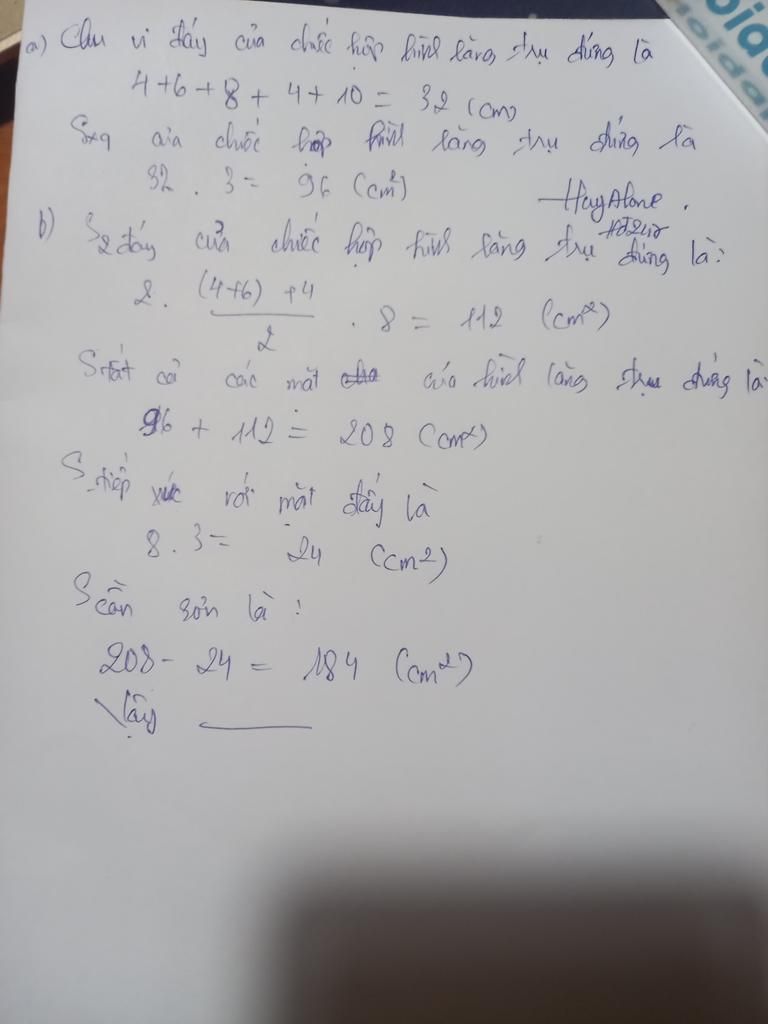 a) Chu vi đáy của chiếc hộp hình lăng trụ đứng là
4+6+8+4+10 = 32 (cm)
Sxq của chiếc hộp hình lăng trụ đứng là
32 . 3 = 96 (cm²)
HuyAlone.
b) S2 đáy của chiếc hộp hình lăng trụ đứng là:
2. (4+6) +4 / 2 . 8 = 112 (cm²)
S tất cả các mặt của hình lăng trụ đứng là
96 + 112 = 208 (cm²)
S tiếp xúc với mặt đáy là
8 . 3 = 24 (cm2)
S cần sơn là :
208 - 24 = 184 (cm²)
Vậy